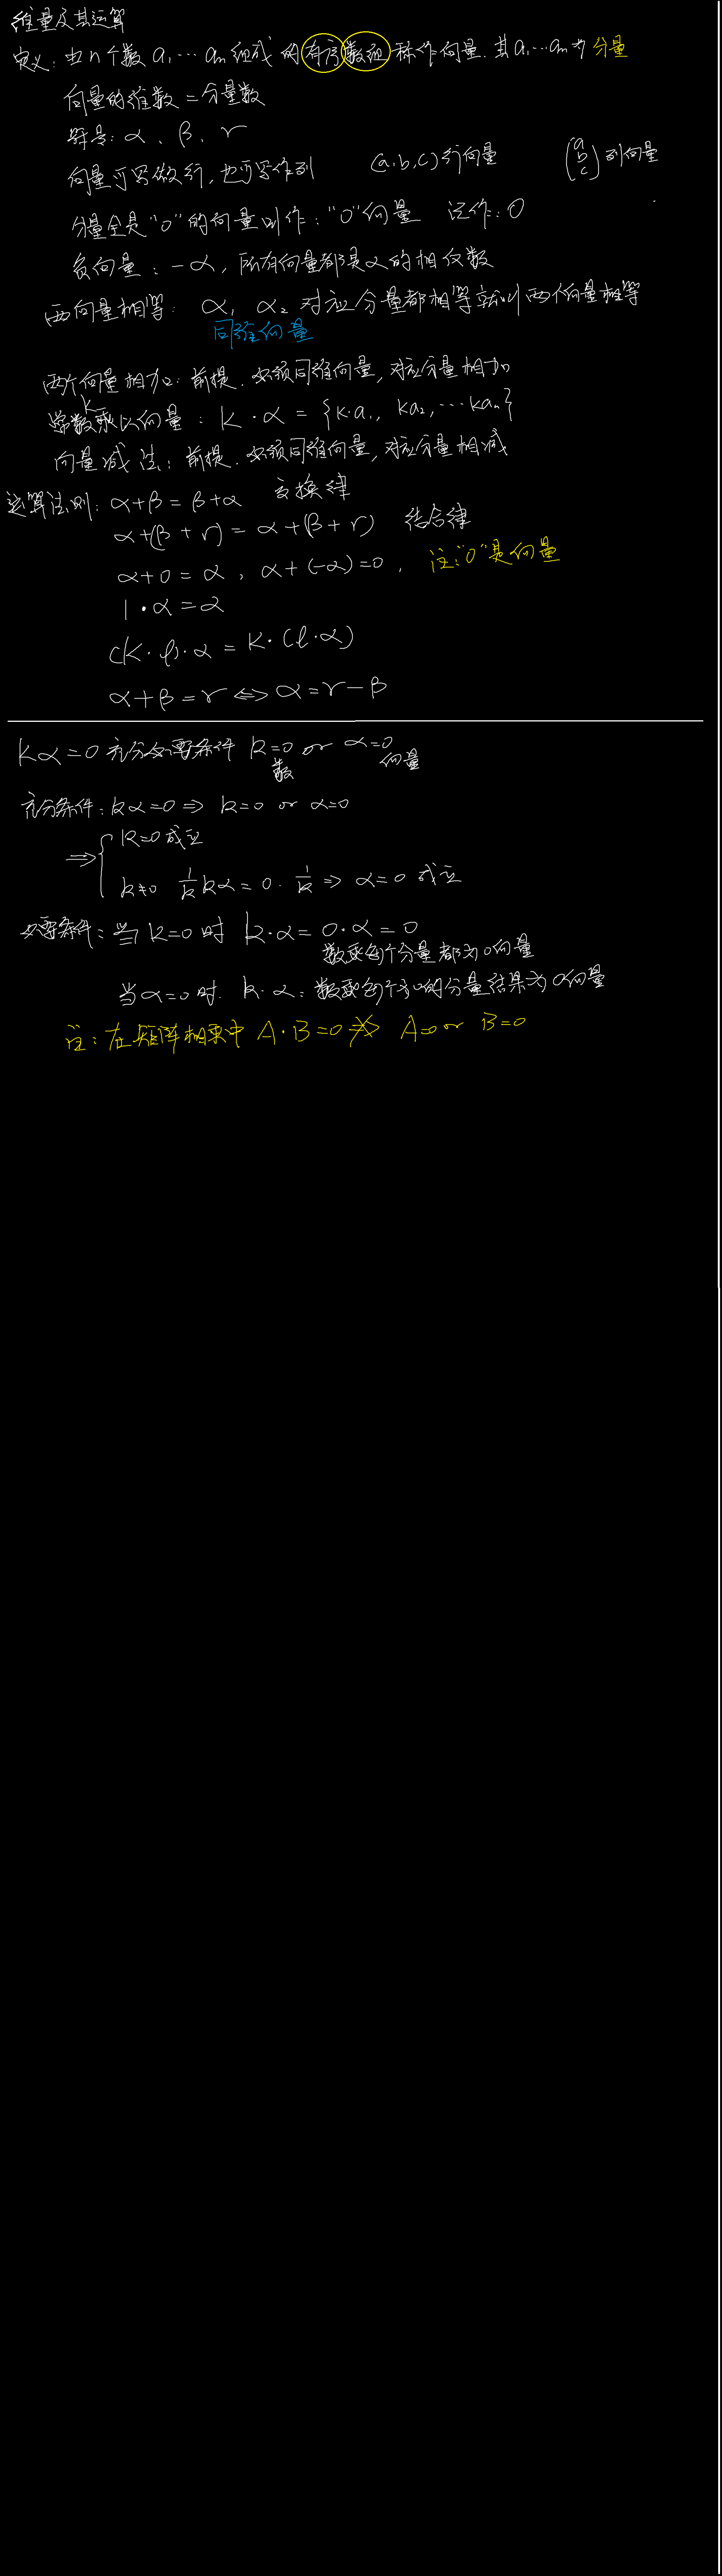 维量及其运算
定义：由n个数 a₁…aₙ组成的有序数组 称作向量. 其a₁…aₙ为 分量
向量的维数 = 分量数
符号：α、β、γ
向量可写做行，也可写作列 (a,b,c)行向量 (a b c) 列向量
分量全是“0”的向量叫作：“0”向量 记作：0
负向量：-α，所有向量都是α的相反数
两向量相等： α₁ α₂ 对应分量都相等就叫两个向量相等
同维向量
两个向量相加：前提. 必须同维向量，对应分量相加
常数k乘以向量：K·α = {k·a₁, ka₂, …kaₙ}
向量减法：前提. 必须同维向量，对应分量相减
运算法则：α+β = β+α 交换律
α+(β+γ) = α+(β+γ) 结合律
α+0 = α，α+(-α)=0， 注：“0”是向量
1·α = α
(K·l)·α = K·(l·α)
α+β=γ ⇔ α=γ-β
kα=0 充分必要条件 k=0 or α=0
数 向量
充分条件：kα=0 ⇒ k=0 or α=0
⇒ { k=0 成立
k≠0 1/k kα = 0·1/k ⇒ α=0 成立
必要条件：当 k=0 时 k·α = 0·α = 0
数乘每个分量都为0向量
当α=0时. k·α：数乘每个为0的分量结果为0向量
注：在矩阵相乘中 A·B=0 ⇏ A=0 or B=0